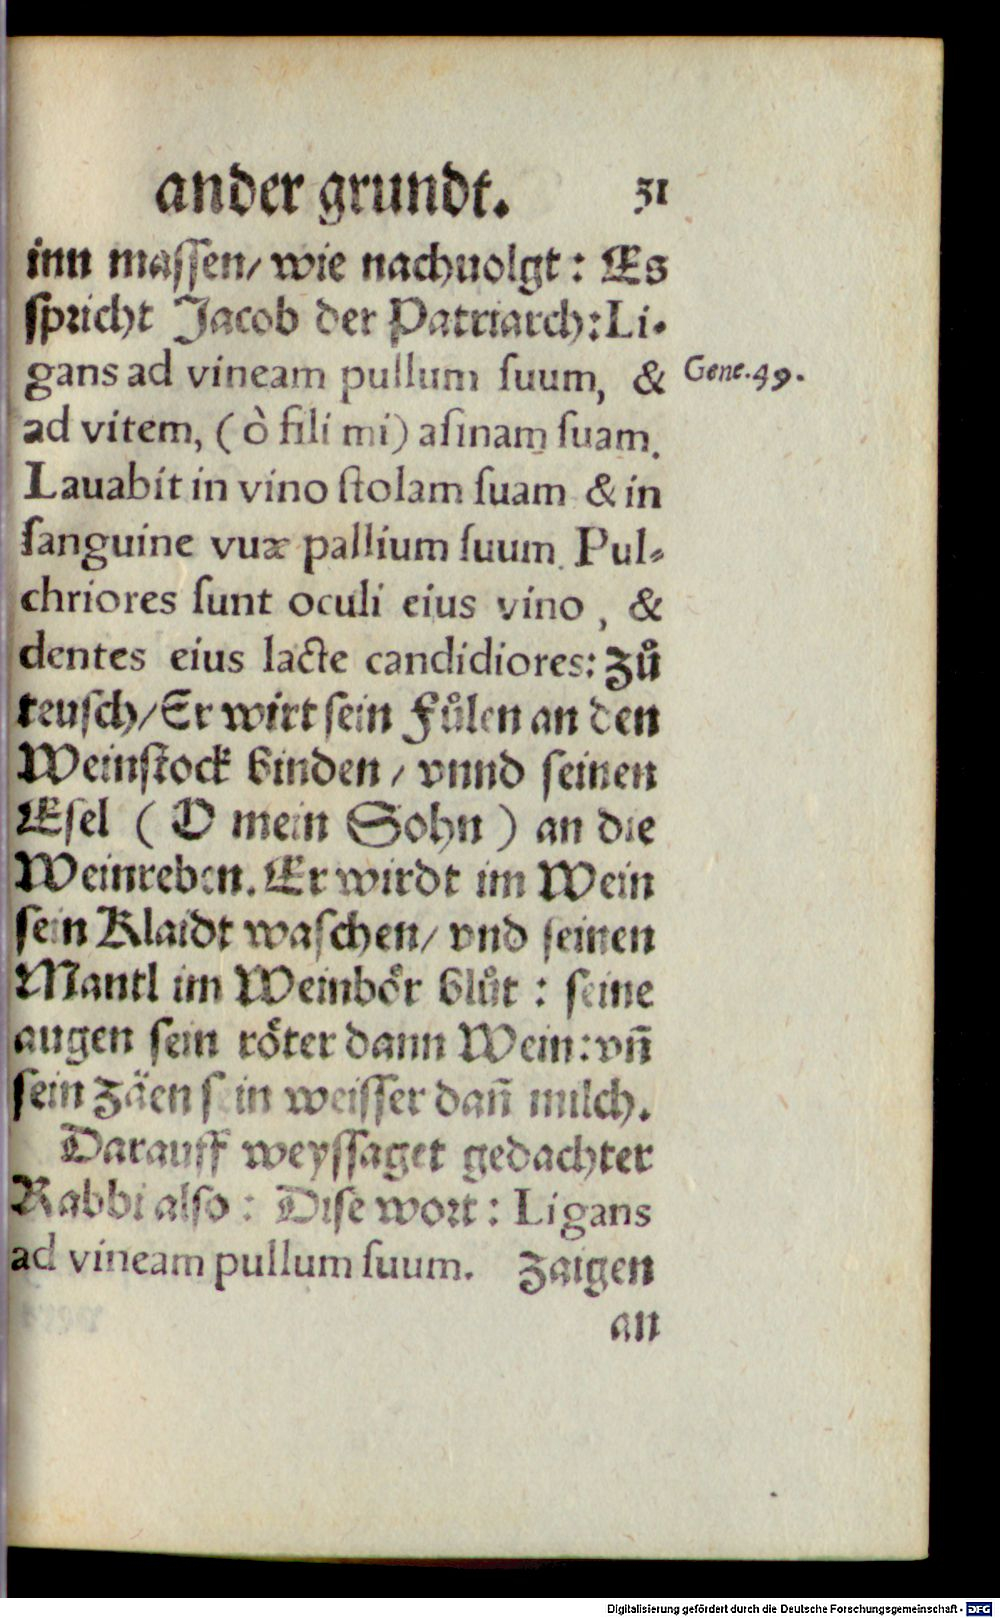 ander grundt. 31
inn massen/ wie nachuolgt: Es
spricht Jacob der Patriarch: Li-
gans ad vineam pullum suum, &
Gene. 49.
ad vitem, (ò fili mi) asinam suam.
Lauabit in vino stolam suam & in
sanguine vuæ pallium suum. Pul-
chriores sunt oculi eius vino, &
dentes eius lacte candidiores: Zů
teusch/ Er wirt sein Fůlen an den
Weinstock binden/ vnnd seinen
Esel (O mein Sohn) an die
Weinreben. Er wirdt im Wein
sein Klaidt waschen/ vnd seinen
Mantl im Weinböꝛ blůt: seine
augen sein röter dann Wein: vñ
sein Zäen sein weisser dañ milch.
Darauff weyssaget gedachter
Rabbi also: Dise woꝛt: Ligans
ad vineam pullum suum. Zaigen
an
Digitalisierung gefördert durch die Deutsche Forschungsgemeinschaft - DFG